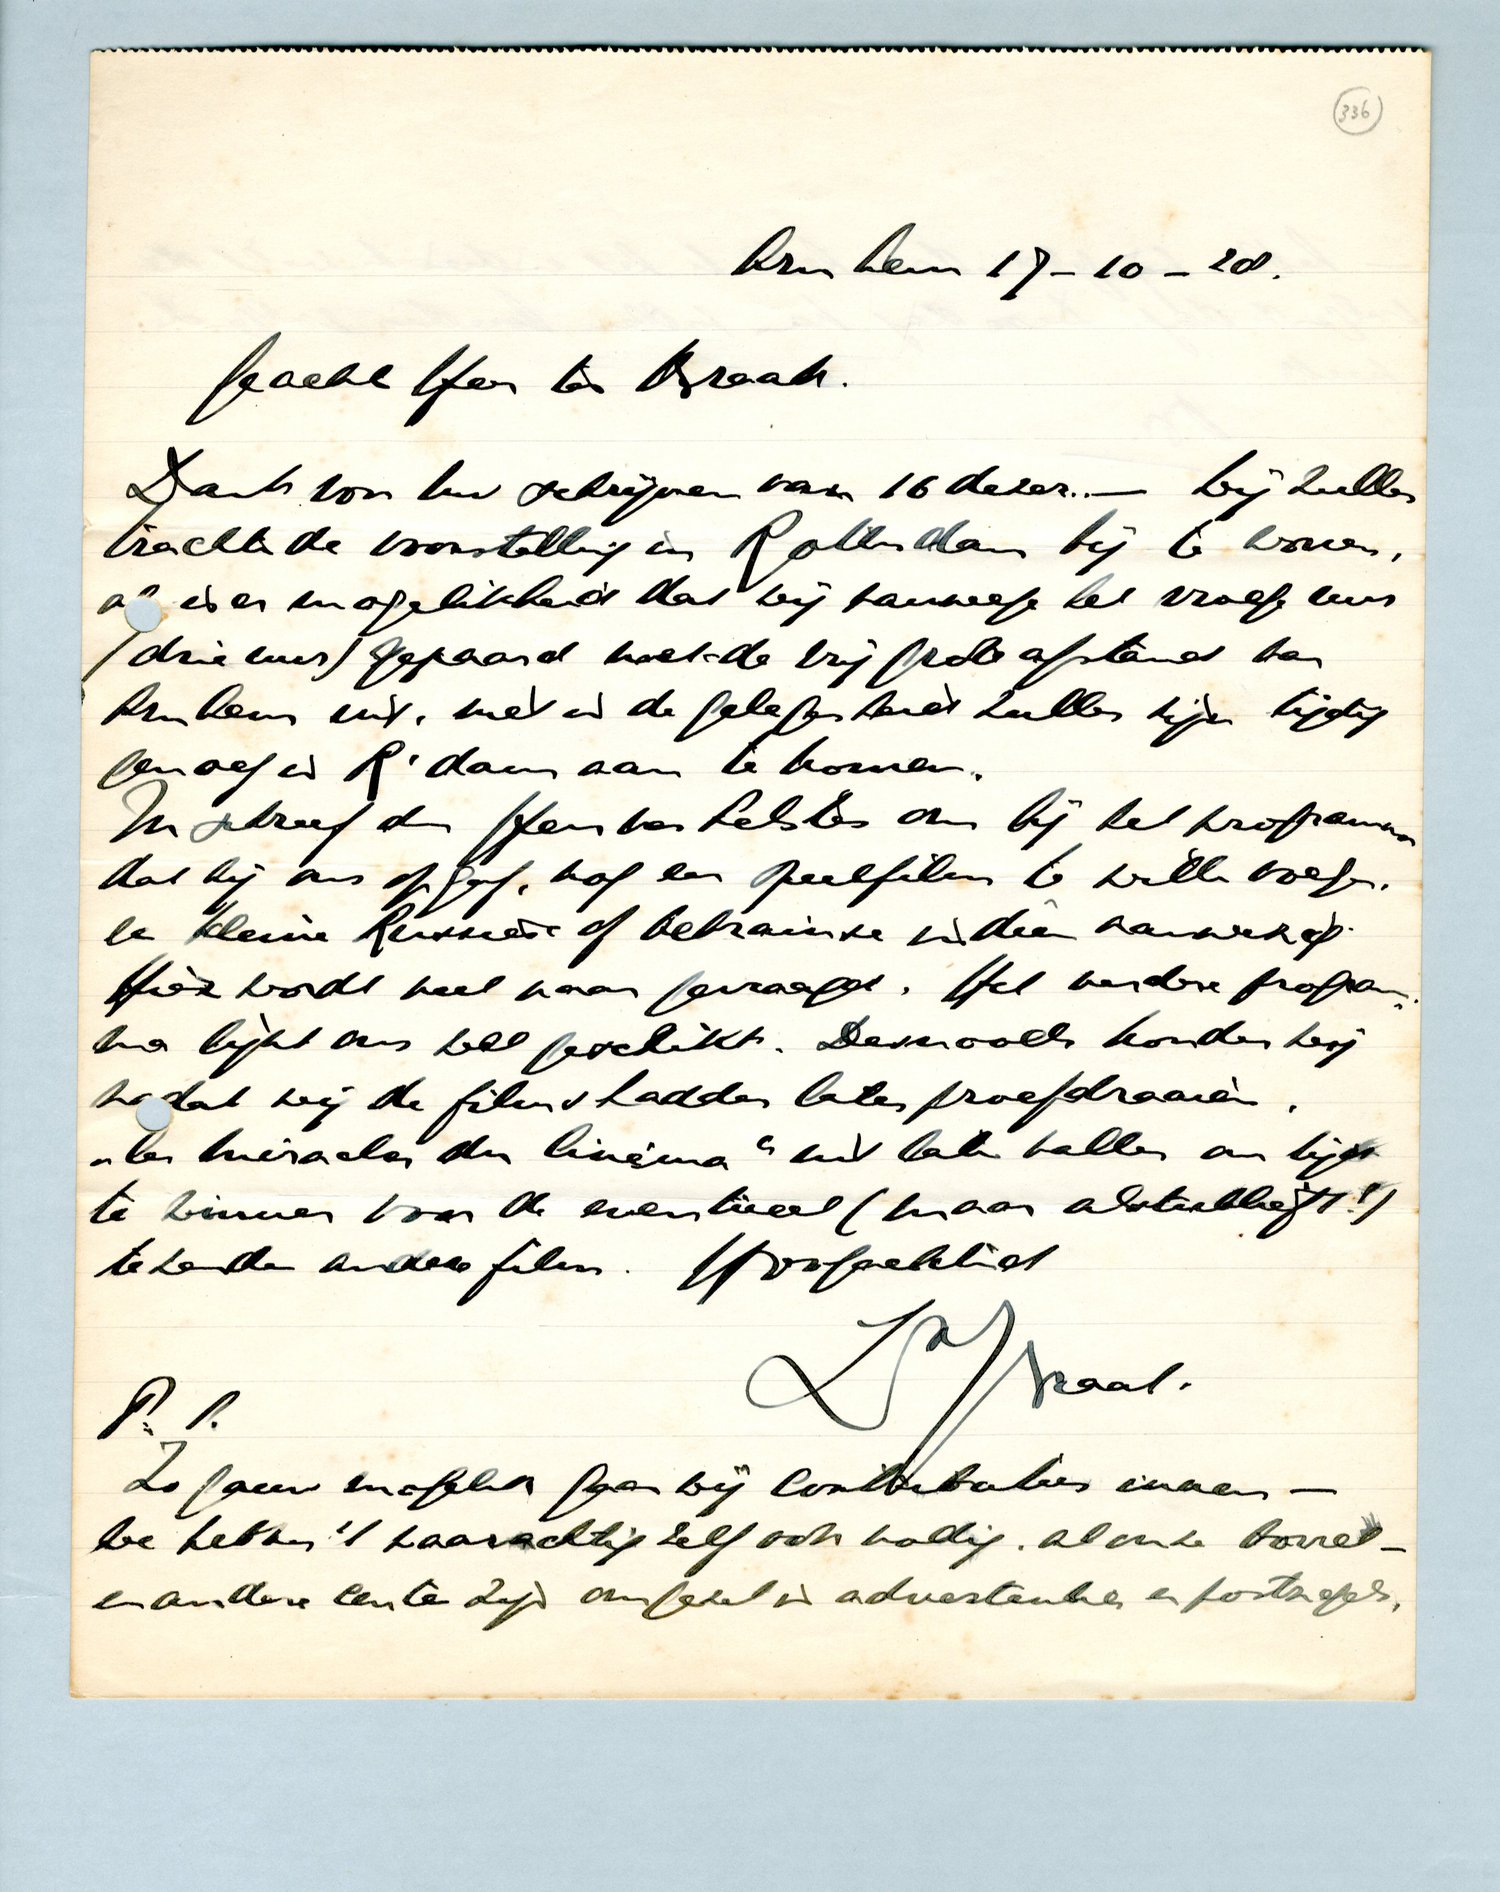 336
Arnhem 17-10-28.
Geachte Heer ter Braak.
Dank voor Uw schrijven van 16 dezer. — Wij zullen
trachten de voorstelling in Rotterdam bij te wonen,
al is er mogelijkheid dat wij vanwege het vroege uur
(drie uur) gepaard met de vrij groote afstand van
Arnhem uit, niet in de gelegenheid zullen zijn tijdig
genoeg in R'dam aan te komen.
Ik schreef den Heer van om bij het programma
dat hij ons opgaf, nog een speelfilm te willen voegen.
en kleine Russische of Oekrainse is dan aanwezig.
Hier wordt veel naar gevraagd. Het verdere program-
ma lijkt ons wel geschikt. Desnoods konden wij
nadat wij de films hadden laten proefdraaien,
„les miracles du cinéma" uit laten vallen om tijd
te winnen voor de eventueel (maar alstublieft!)
te zenden andere film. Hoogachtend
Praat.
P.S.
Zo gauw mogelijk gaan wij contributies innen —
we hebben 't waarachtig zelf ook nodig. al onze borrel-
en andere centen zijn omgezet in advertenties en postzegels.